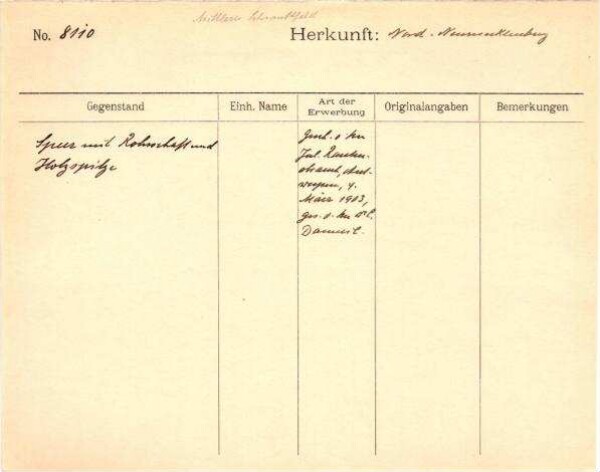 Mittlere Schrankfeld
No. 8110 Herkunft: Nord-Neumecklenburg
Gegenstand Einh. Name Art der Erwerbung Originalangaben Bemerkungen
Speer mit Rohrschaft und
Holzspitze
Gesch. v. Hrn
Jul.
werpen, 4.
März 1903,
ges. v. Hrn